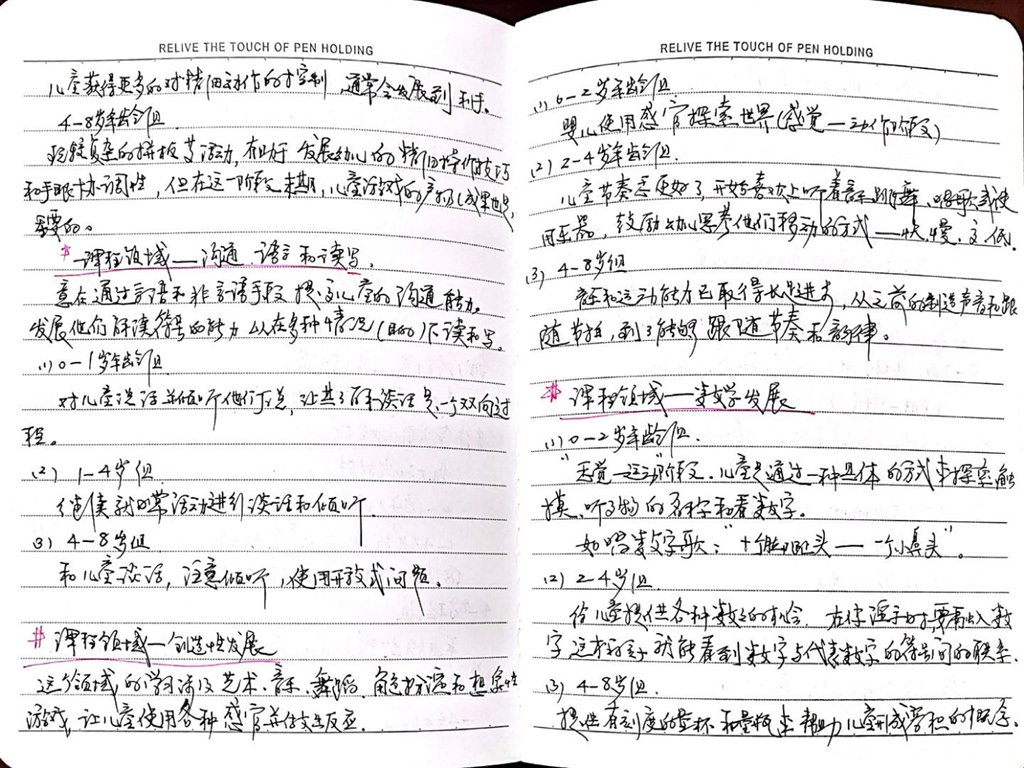 RELIVE THE TOUCH OF PEN HOLDING
儿童获得更多的对精细动作的控制 通常会发展到利手。
4-8岁年龄组
比较复杂的拼板等活动,有助于发展幼儿的精细操作技巧
和手眼协调性,但在这一阶段末期,儿童游戏的产物(成果也是
重要的。
* 课程领域——沟通、语言和读写.
意在通过言语和非言语手段 提高儿童的沟通能力。
发展他们解读符号的能力 以及在多种情况(目的)下读和写。
(1) 0-1岁年龄组
对儿童说话并倾听他们说,让其了解谈话是一个双向过
程。
(2) 1-4岁组
继续就日常活动进行谈话和倾听.
(3) 4-8岁组
和儿童谈话,注意倾听,使用开放式问题。
# 课程领域—创造性发展
这个领域的学习涉及艺术、音乐、舞蹈、角色扮演和想象性
游戏,让儿童使用各种感官并作出反应.
RELIVE THE TOUCH OF PEN HOLDING
(1) 0-2岁年龄组
婴儿使用感官探索世界(感觉—动作阶段)
(2) 2-4岁年龄组.
儿童节奏感更好了,开始喜欢上听着音乐跳舞、唱歌或使
用乐器,鼓励幼儿思考他们移动的方式——快、慢、高、低.
(3) 4-8岁组
音乐和运动能力已取得长足进步,从之前的制造声音和跟
随节拍,到了能够跟随节奏和韵律。
* 课程领域——数学发展
(1) 0-2岁年龄组.
"感觉—运动"阶段.儿童是通过一种具体的方式来探索、触
摸、听事物的名字和看数字。
如唱数字歌:"十个脚趾头—一个小鼻头".
(2) 2-4岁组
给儿童提供各种数数的机会.
字 这样孩子就能看到数字与代表数字的符号间的联系.
(3) 4-8岁组.
提供有刻度的量杯和量瓶来帮助儿童形成容积的概念.